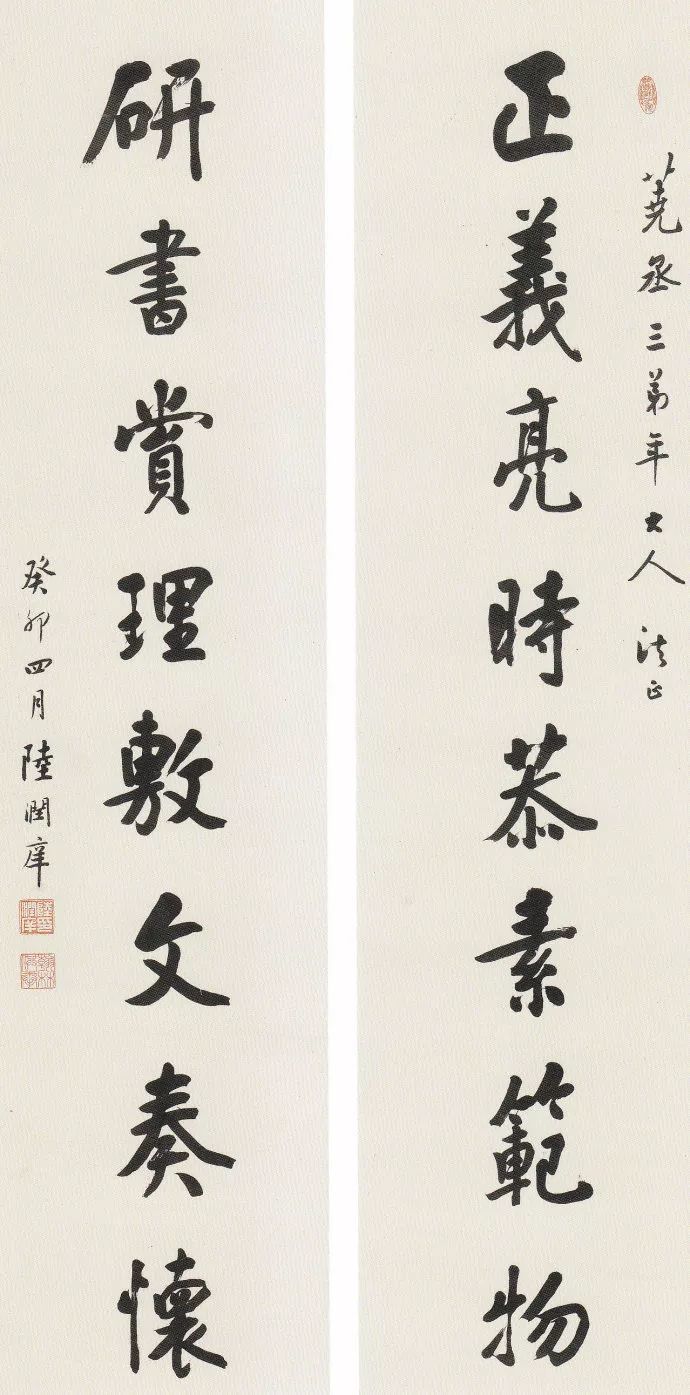 蕘丞三弟年大人法正
正義亮時恭素範物
研書賞理敷文奏懷
癸卯四月陸潤庠